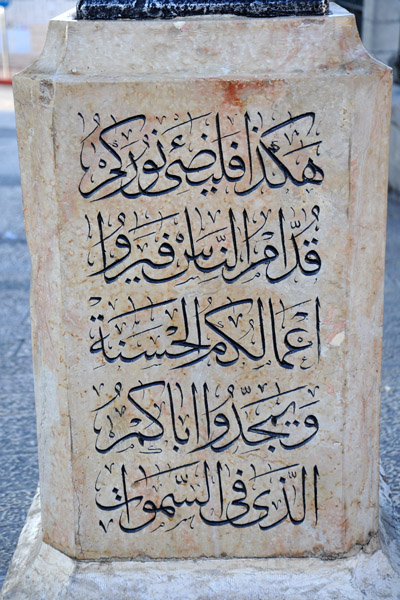 هكذا فليضئ نوركم
قدّام النّاس فيروا
اعمالكم الحسنة
ويمجّدوا اباكم
الذى فى السّموات